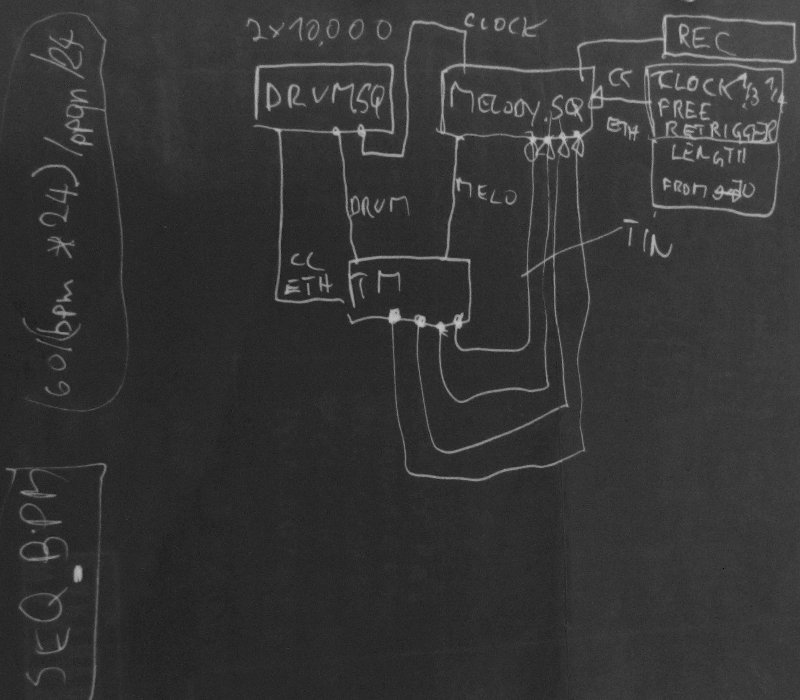 2x10,000
CLOCK
REC
DRUM.SQ
MELODY.SQ
CC
ETH
CLOCK 1/3 1/4
FREE
RETRIGGER
LENGTH
DRUM
MELO
TIN
CC
ETH
TM
(60/(bpm * 24)/ppqn/24
SEQ_BPM